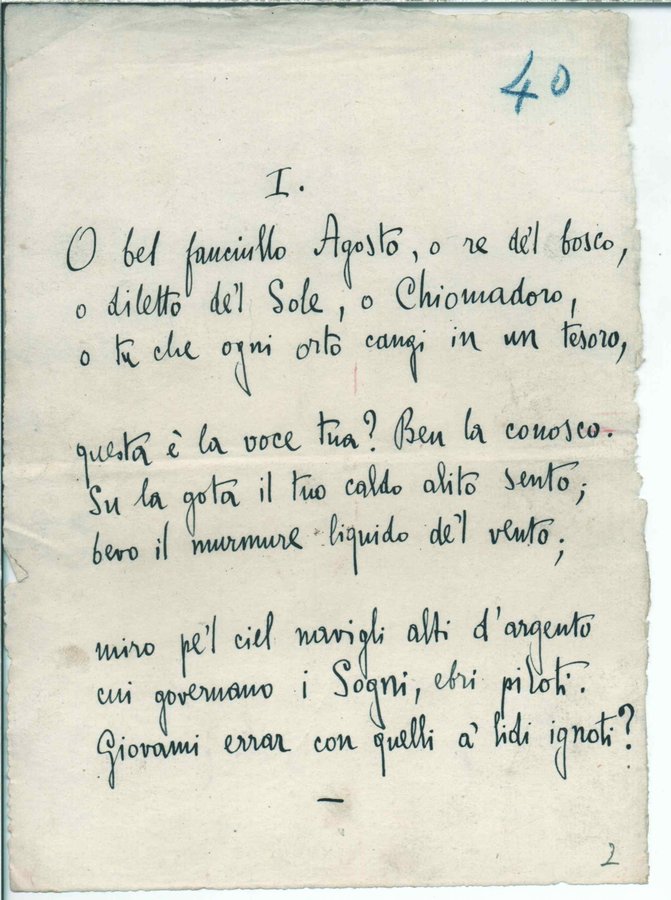 40
I.
O bel fanciullo Agosto, o re de'l bosco,
o diletto de'l Sole, o Chiomadoro,
o tu che ogni orto cangi in un tesoro,
questa è la voce tua? Ben la conosco.
Su la gota il tuo caldo alito sento;
bevo il murmure liquido de'l vento;
miro pe'l ciel navigli alti d'argento
cui governano i Sogni, ebri piloti.
Giovami errar con quelli a' lidi ignoti?
2